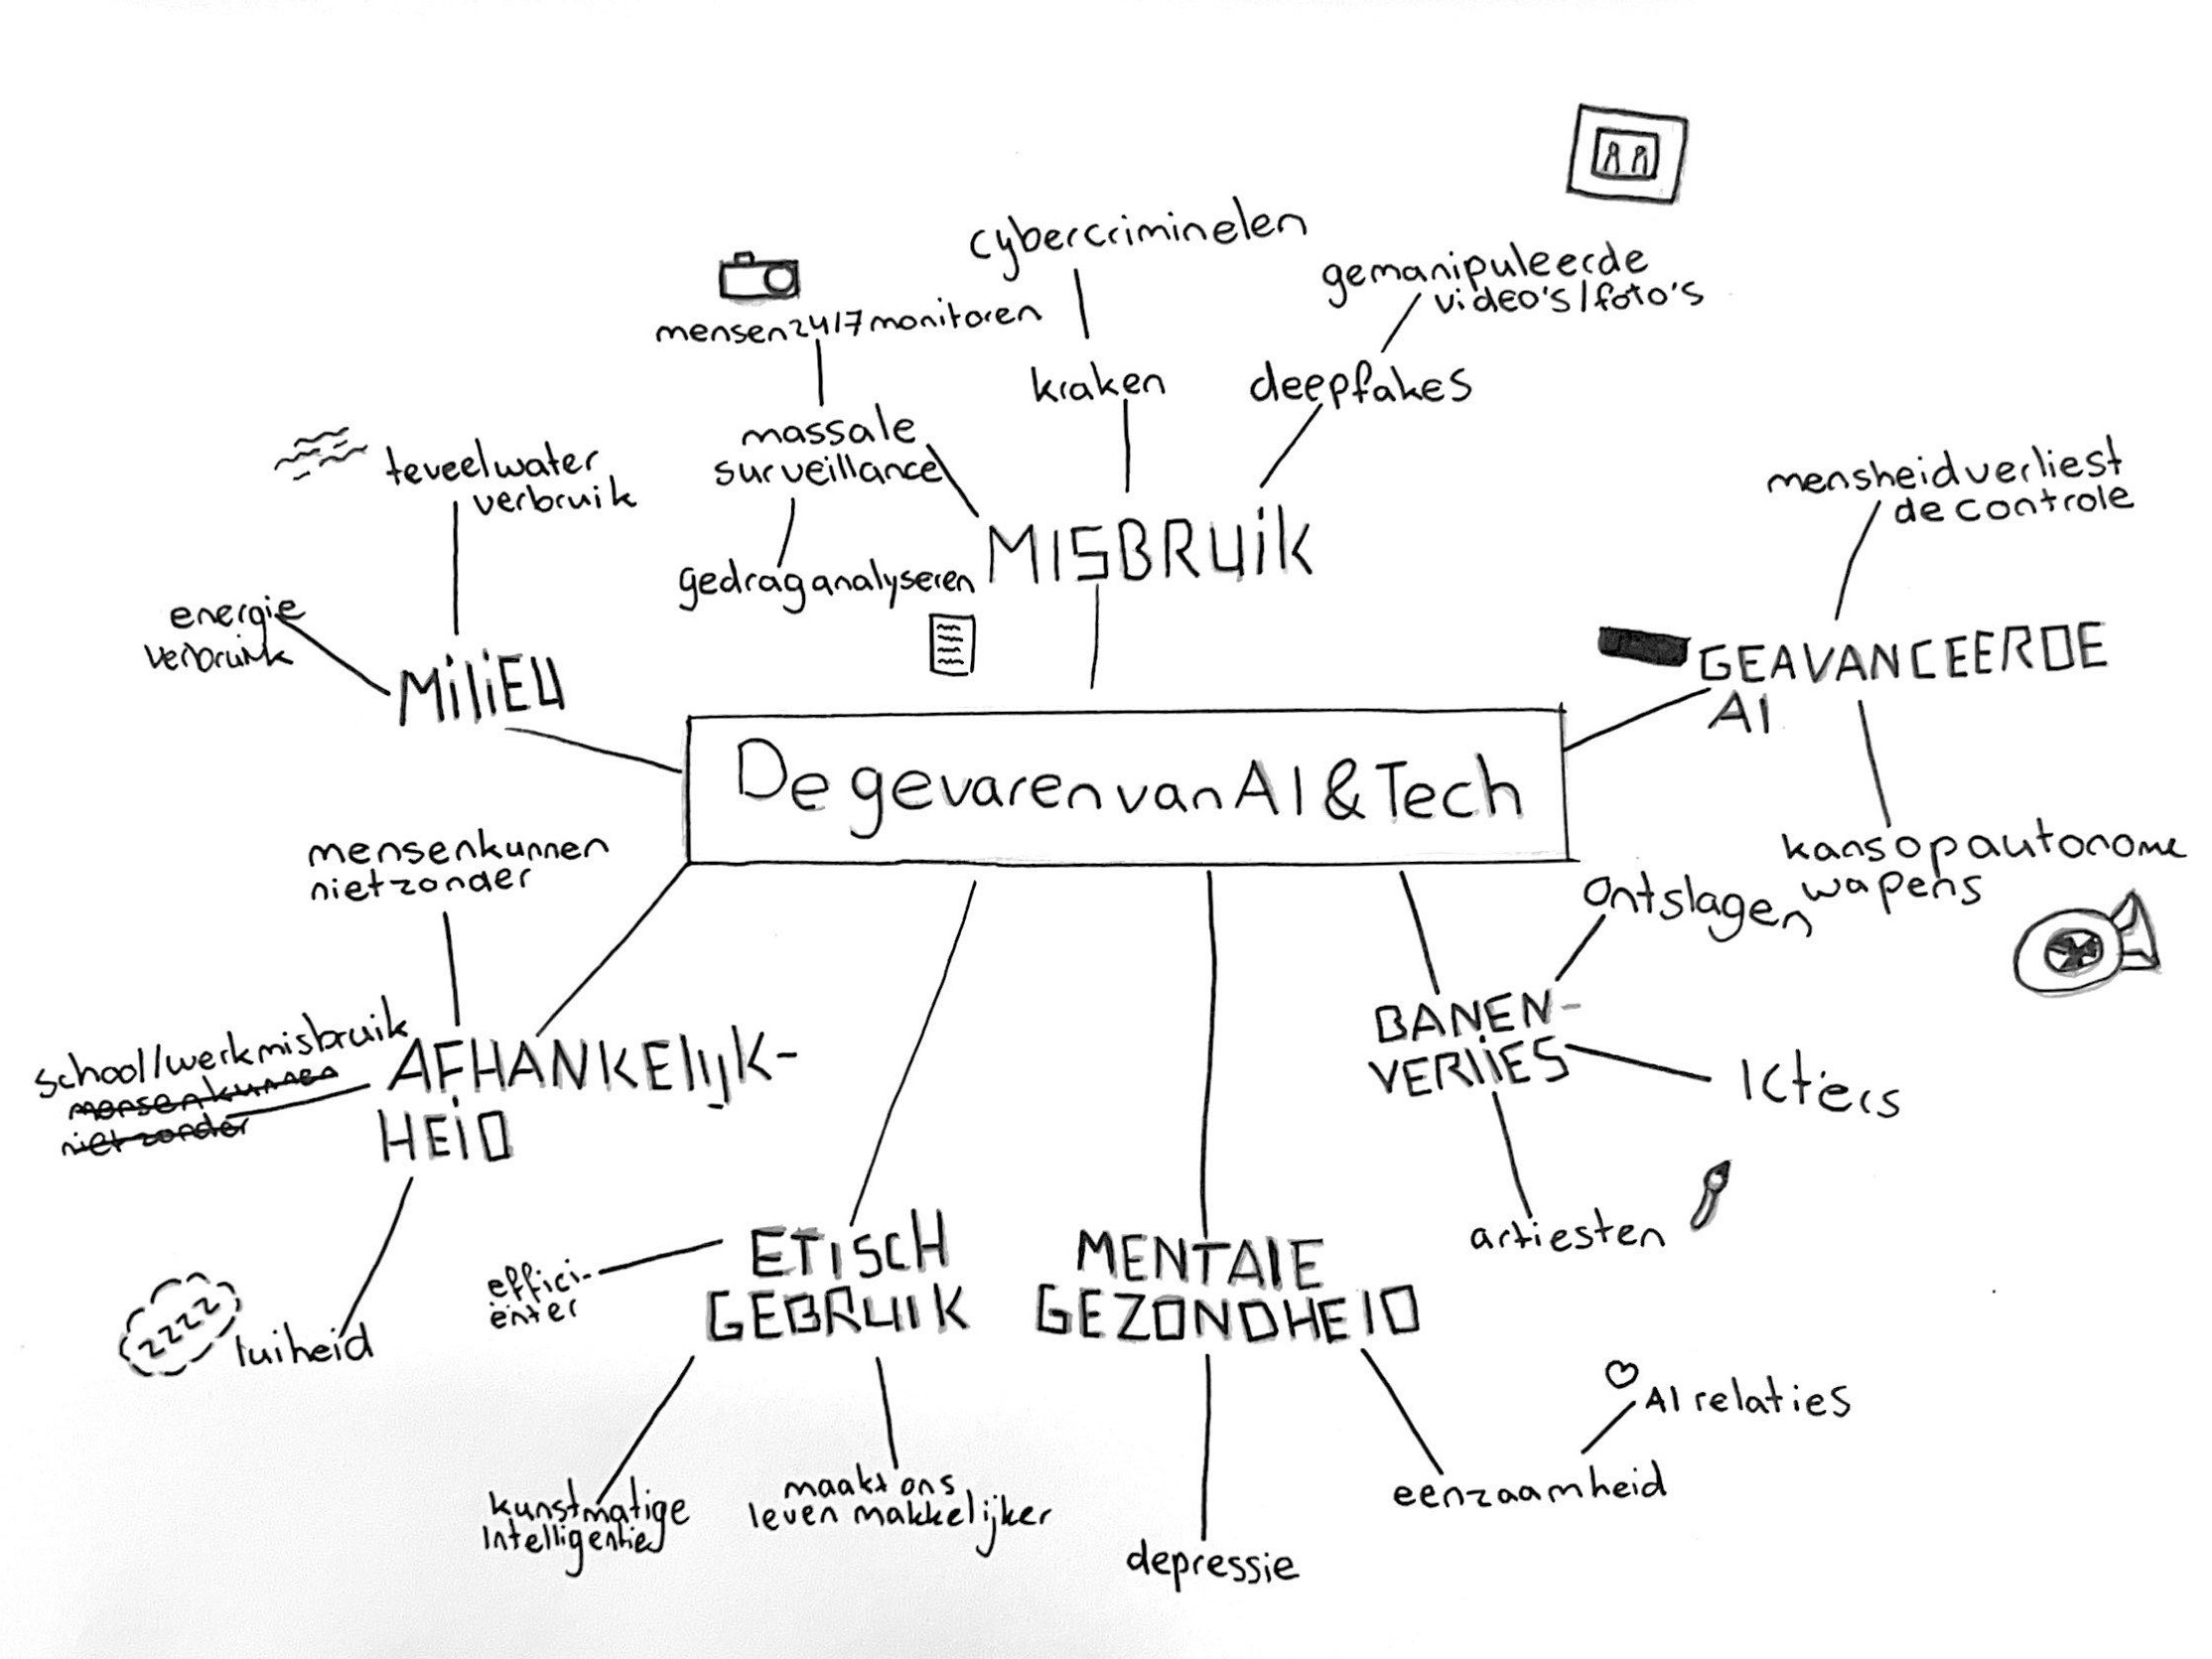 cybercriminelen
gemanipuleerde
video's/foto's
mensen 24/7 monitoren
kraken
deepfakes
massale
surveillance
gedrag analyseren
MISBRUIK
te veel water
verbruik
energie
verbruik
MILIEU
mensheid verliest
de controle
GEAVANCEERDE
AI
De gevaren van AI & Tech
kans op autonome
wapens
mensen kunnen
niet zonder
school/werk misbruik
mensen kunnen
niet zonder
AFHANKELIJK-
HEID
zzzz
luiheid
ontslagen
BANEN-
VERLIES
ICT'ers
artiesten
ETISCH
GEBRUIK
effici-
ënter
kunstmatige
intelligentie
maakt ons
leven makkelijker
MENTALE
GEZONDHEID
depressie
AI relaties
eenzaamheid